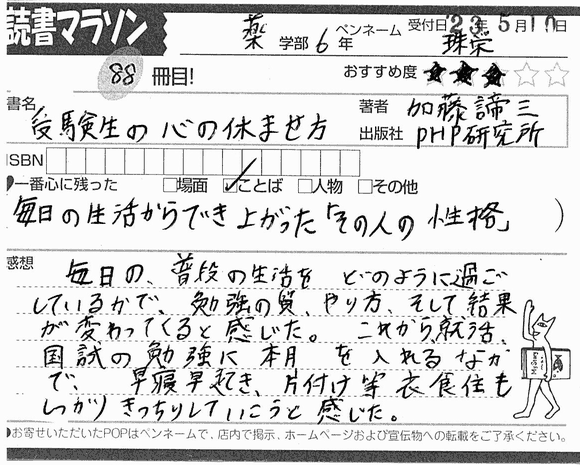 読書マラソン
薬 学部 6 年
ペンネーム 珠栄
受付日 23年 5月10日
88 冊目!
おすすめ度 ★★★☆☆
書名 受験生の心の休ませ方
著者 加藤諦三
出版社 PHP研究所
ISBN
♥一番心に残った □場面 ☑ことば □人物 □その他
毎日の生活からでき上がった「その人の 性格」 )
感想 毎日の、普段の生活を どのように過ご
しているかで、勉強の質、やり方、そして結果
が変わってくると感じた。 これから就活、
国試の勉強に 本月 を入れるなか
で、 早寝早起き、片付け等 衣食住も
しっかり きっちりしていこうと 感じた。
●お寄せいただいたPOPはペンネームで、店内で掲示、ホームページおよび宣伝物への転載をご了承ください。